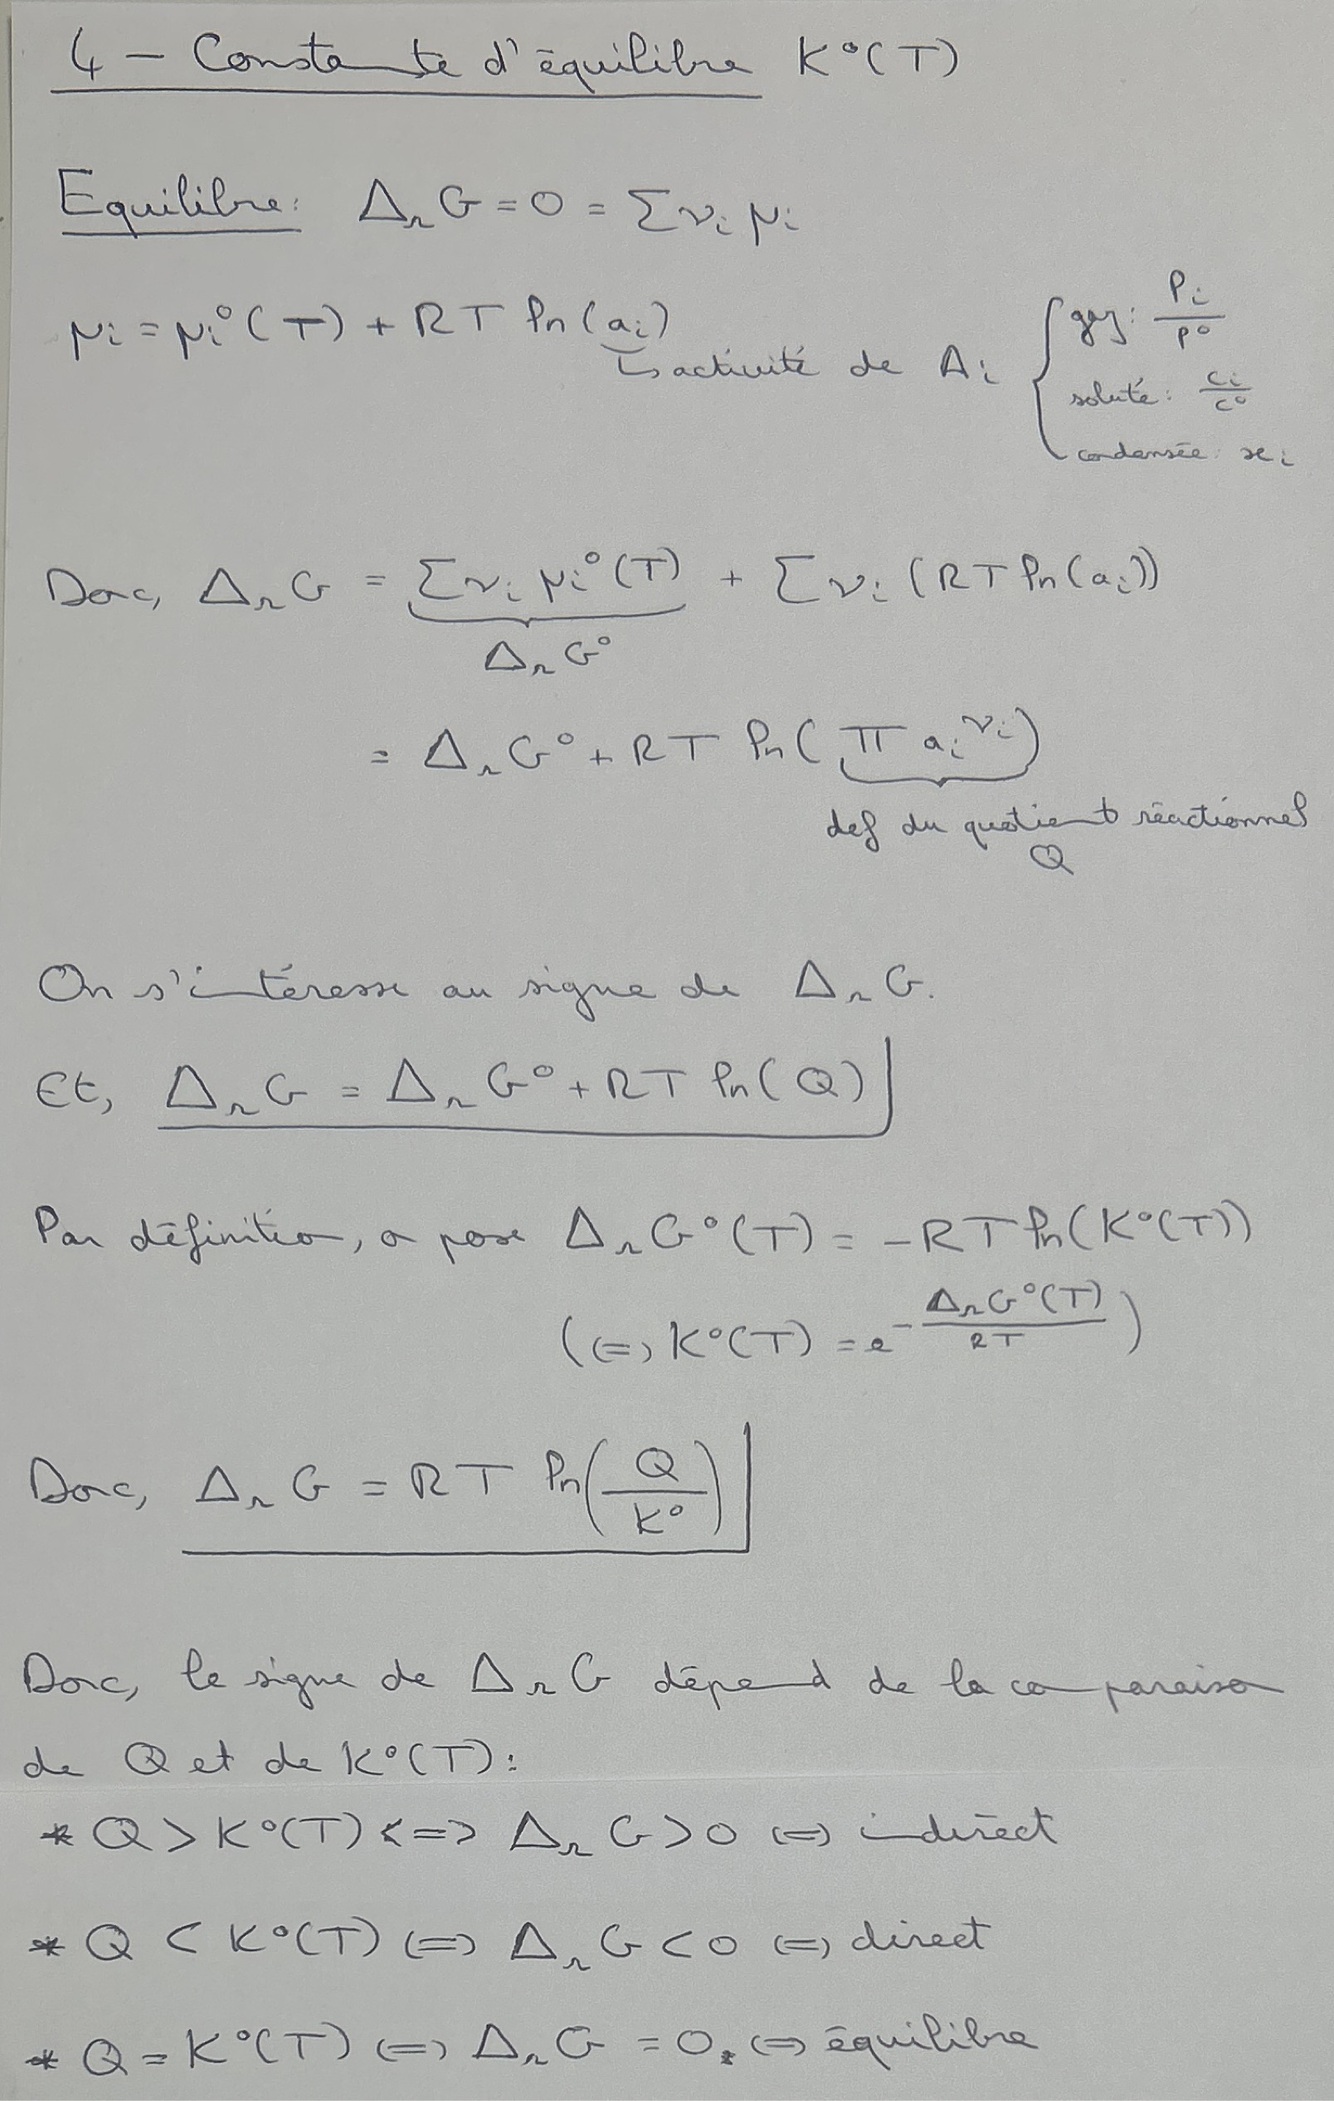 4 – Constante d'équilibre K°(T)
Equilibre: ΔrG = 0 = Σνi μi
μi = μi°(T) + RT ln(ai)
↳ activité de Ai { gaz: Pi/P°
soluté: ci/c°
condensée: xi
Donc, ΔrG = Σνi μi°(T) + Σνi (RT ln(ai))
ΔrG°
= ΔrG° + RT ln(Π ai^νi)
def du quotient réactionnel
Q
On s'intéresse au signe de ΔrG.
Et, ΔrG = ΔrG° + RT ln(Q)
Par définition, on pose ΔrG°(T) = -RT ln(K°(T))
(⇔ K°(T) = e^(-ΔrG°(T)/RT))
Donc, ΔrG = RT ln(Q/K°)
Donc, le signe de ΔrG dépend de la comparaison
de Q et de K°(T):
* Q > K°(T) <=> ΔrG > 0 ⇔ indirect
* Q < K°(T) ⇔ ΔrG < 0 ⇔ direct
* Q = K°(T) ⇔ ΔrG = 0. ⇔ équilibre